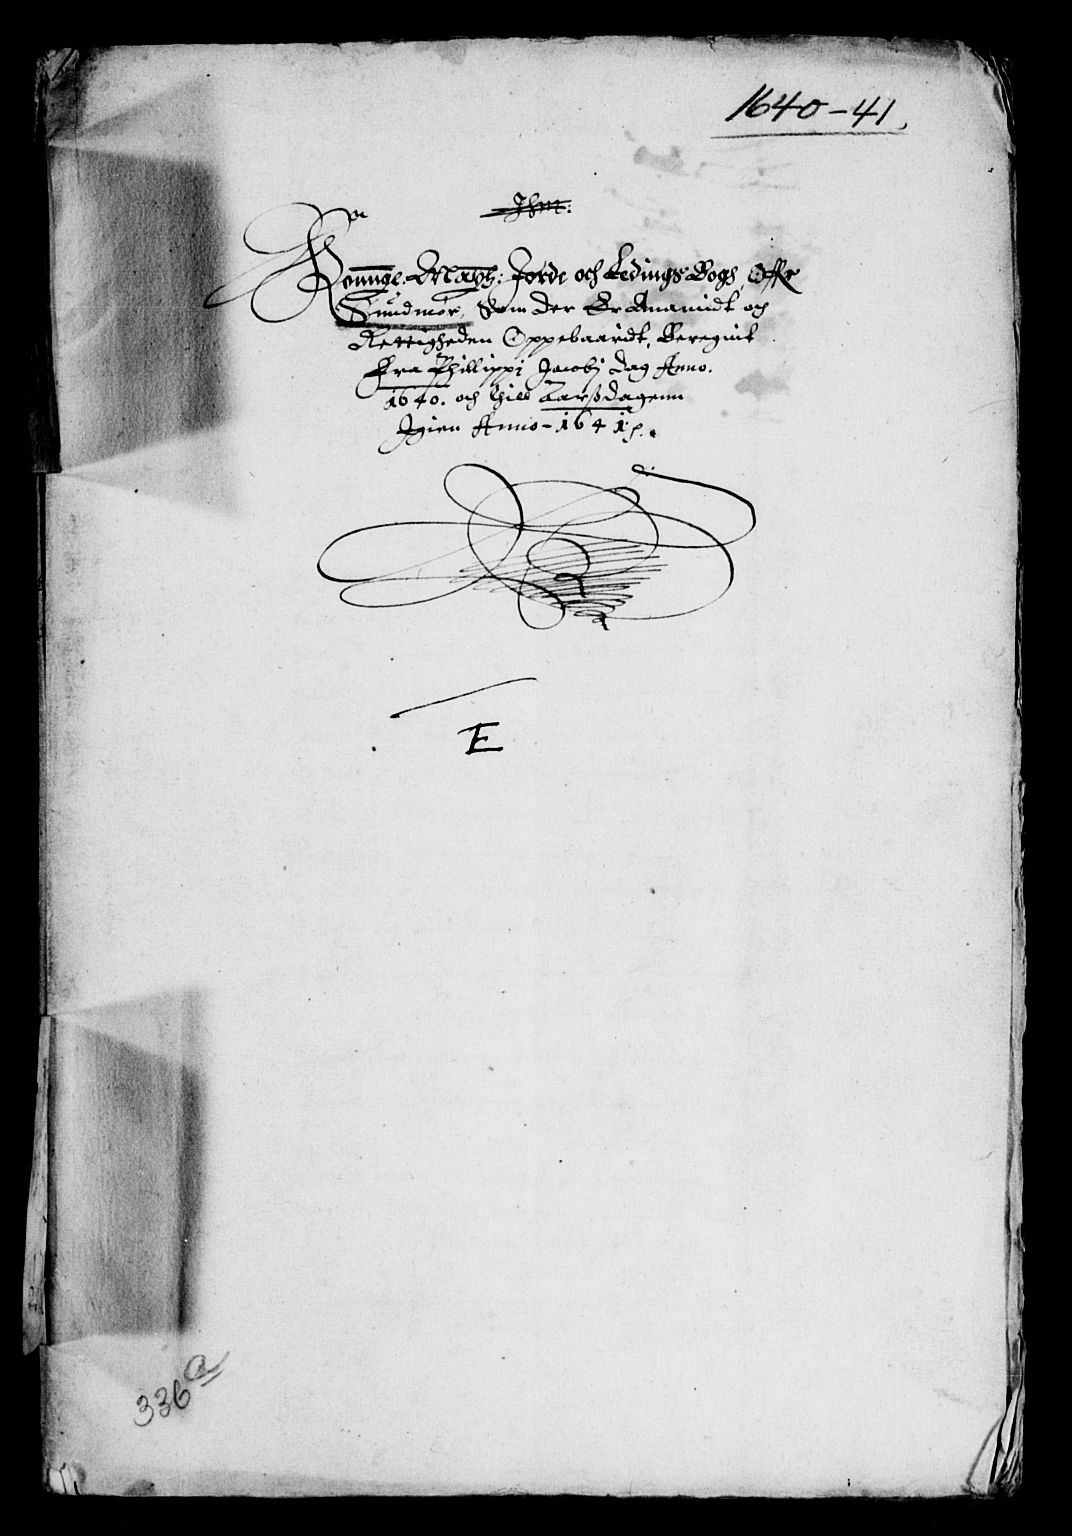 1640-41,
Konngl. Maytz: Jorde och Ledings Bogh, Offr
Sundmör, som der Er Anamidt och
Rettigheden Oppebaaridt, Beregnit
Fra Phillippi Jacobj dag Anno.
1640. och thill Aarßdagenn
Igien Anno - 1641 p.
E
336 a